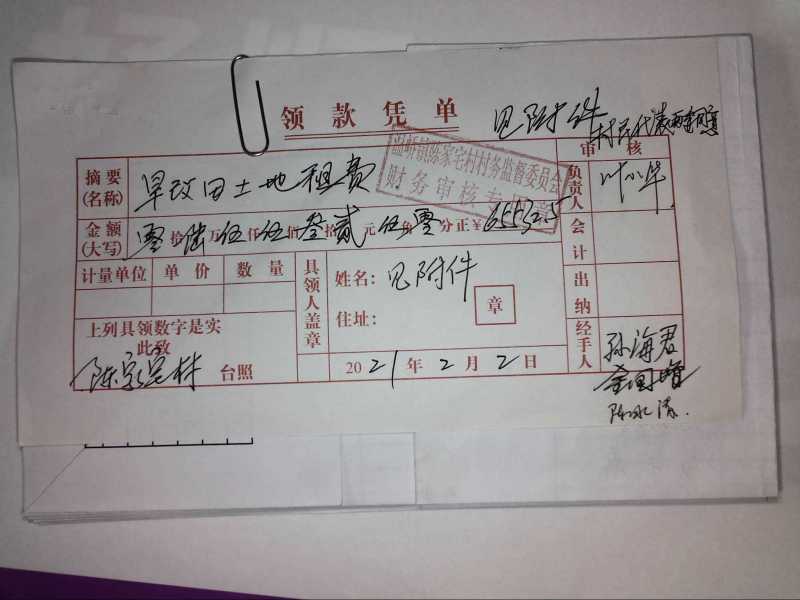 领款凭单
见附件
村民代表
温峤镇陈家宅村村务监督委员会
财务审核专用章
摘要(名称) 旱改田土地租费
审核
负责人
金额(大写) 零拾陆万伍仟伍佰叁拾贰元伍角零分正¥65532.5
会计
计量单位 单价 数量
具领人盖章
姓名: 见附件
住址:
章
出纳
上列具领数字是实
此致
陈家宅村 台照
2021年2月2日
经手人
孙海君